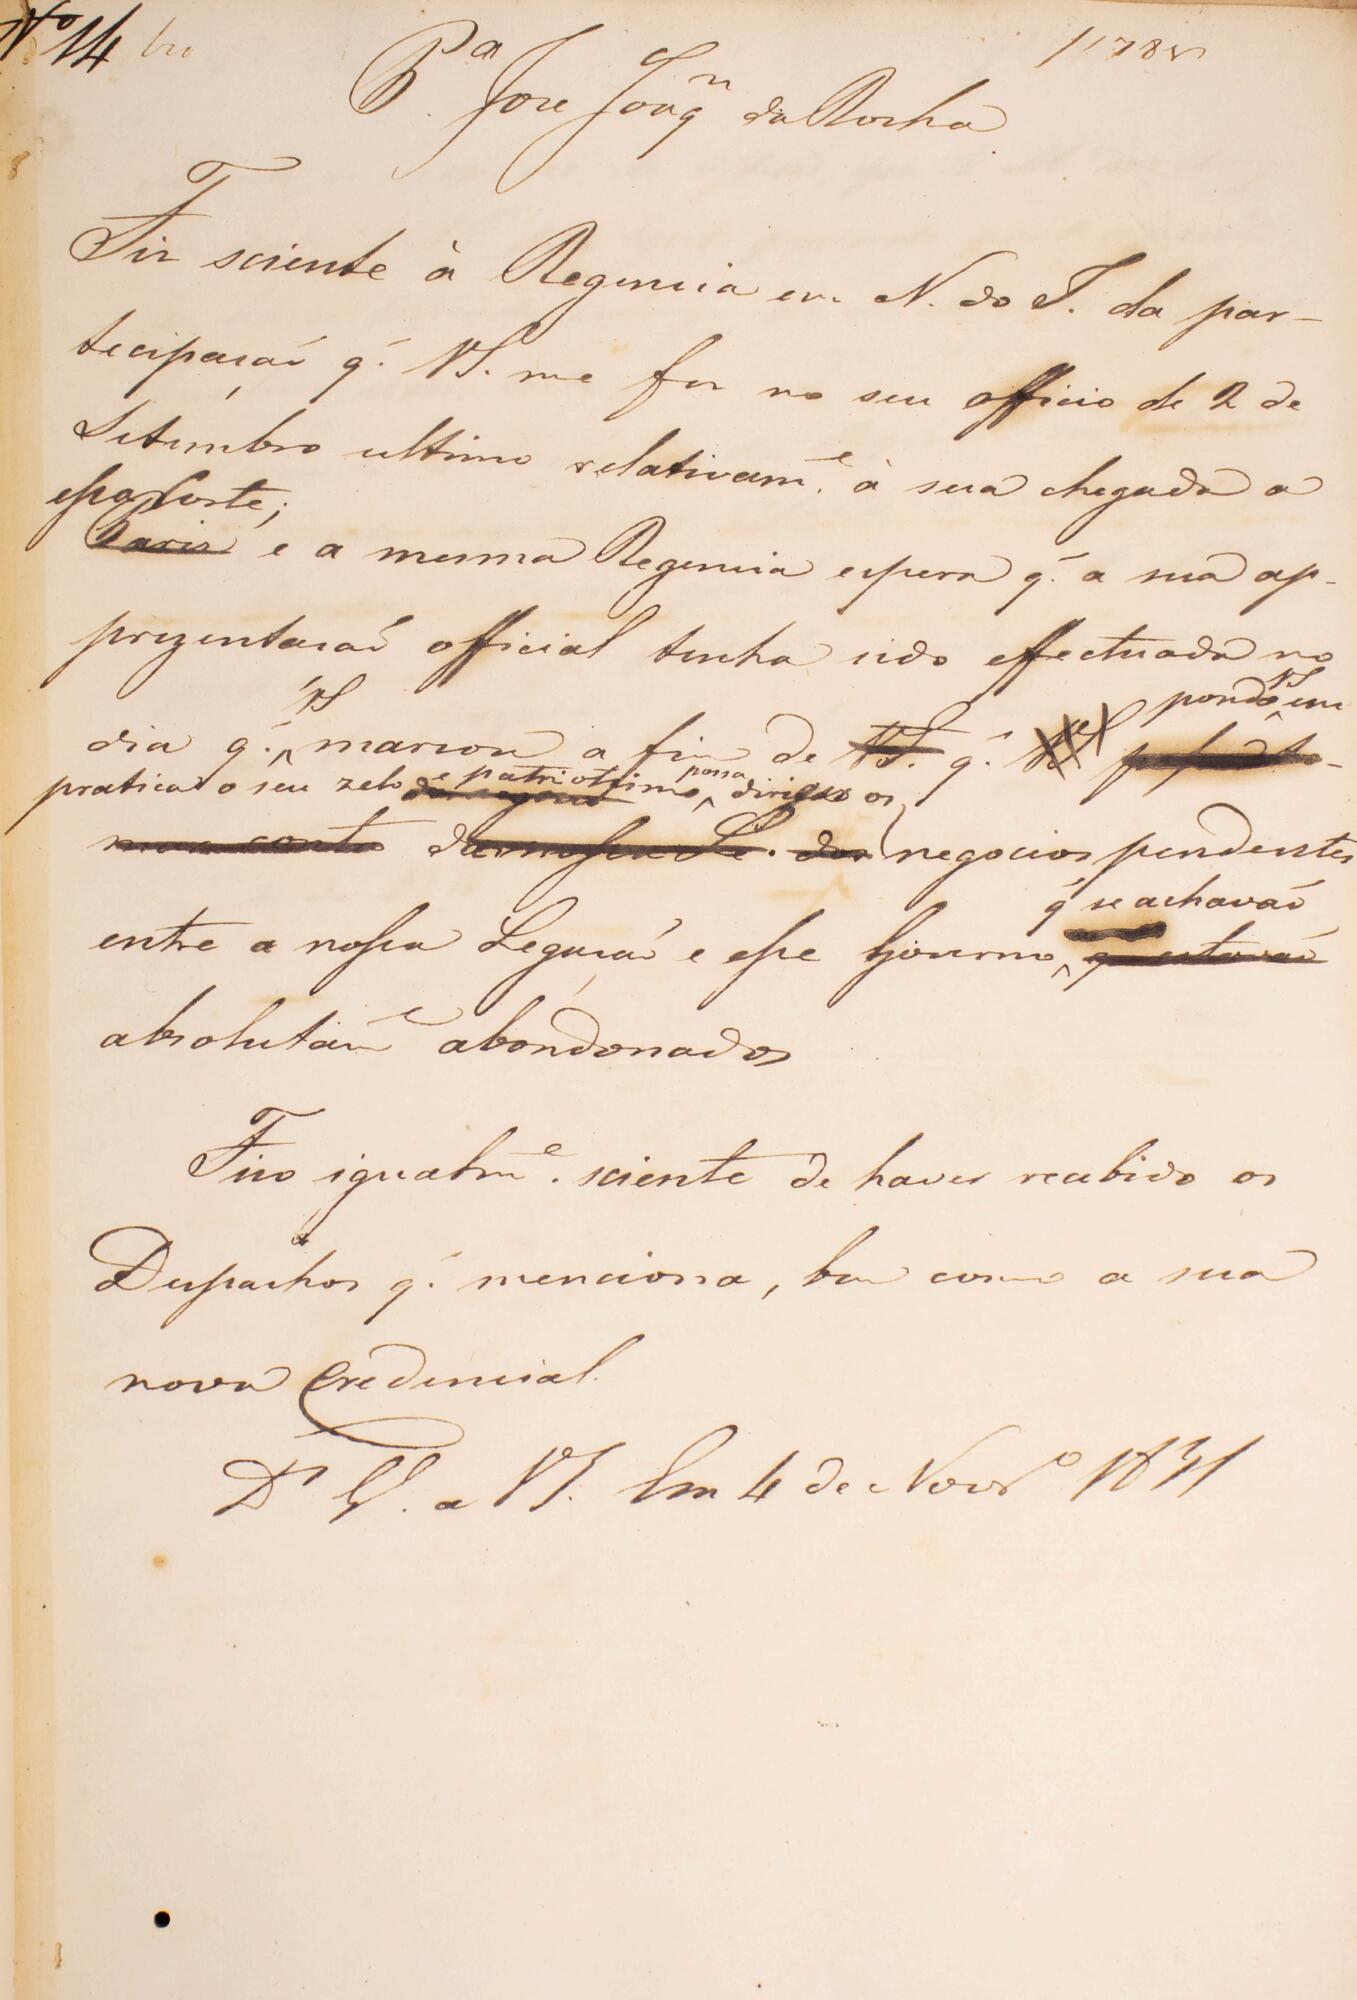 Nº 14
Pª José Joaqn da Rocha
Fiz sciente à Regencia em N. do I. da par-
tecipação q. VS. me fez no seu officio de 2 de
Setembro ultimo relativame. à sua chegada a
essa Corte;
Pariz e a mesma Regencia espera q. a sua ap-
prezentação official tenha sido effectuada no
dia q. VS marcou a fim de VS. q. VS pondo VS em
pratica o seu zelo e patriotismo possa dirigir os
da nossa Le. dos negocios pendentes
entre a nossa Legação e esse Governo, q se achavão
q estavão
absolutame abandonados
Fico igualme. sciente de haver recebido os
Despachos q. menciona, bem como a sua
nova Credencial.
Ds Ge. a VS. Em 4 de Novbo 1831